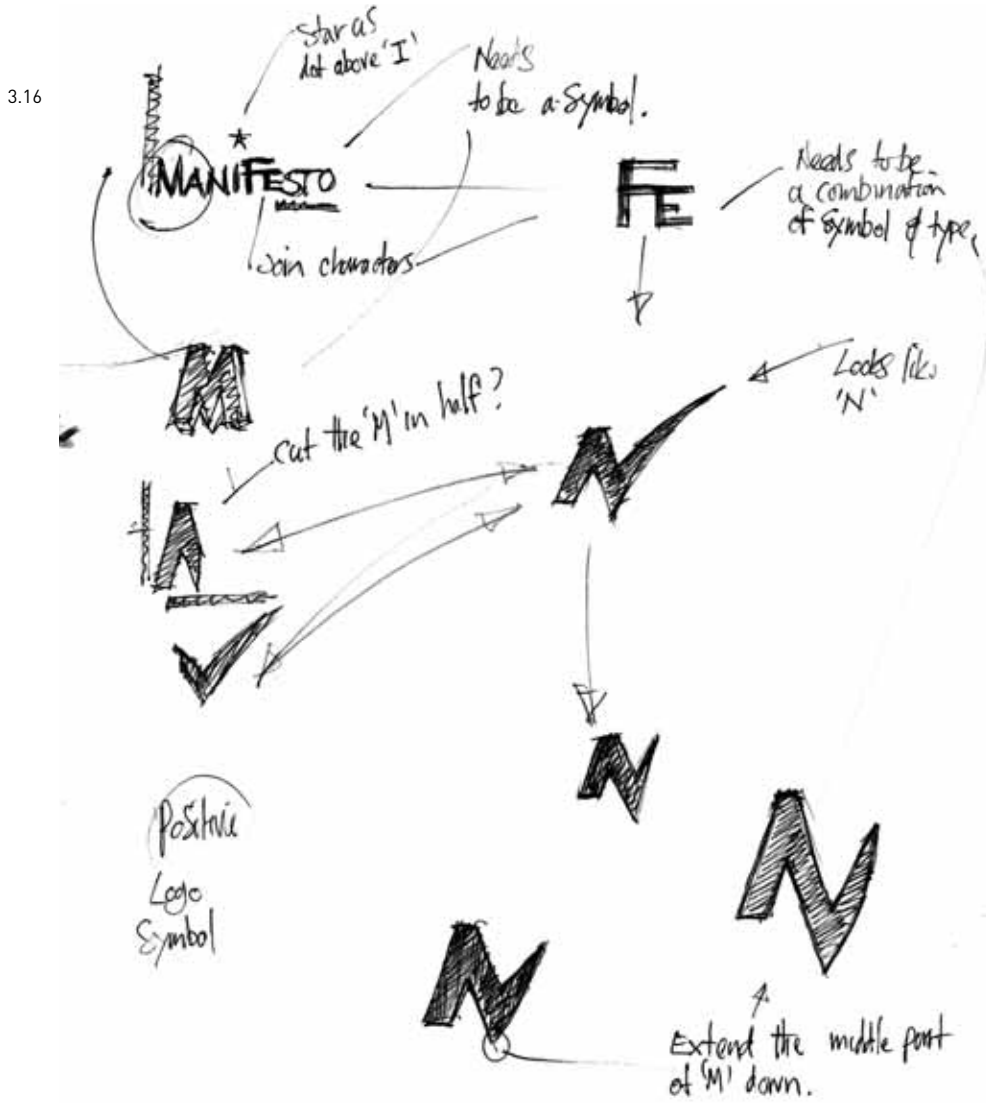 3.16
Star as
dot above 'I'
Needs
to be a Symbol.
MANIFESTO
FE
Needs to be
a combination
of Symbol & type.
Join characters
M
Looks like
'N'
Cut the 'M' in half?
Positive
Logo
Symbol
Extend the middle part
of 'M' down.